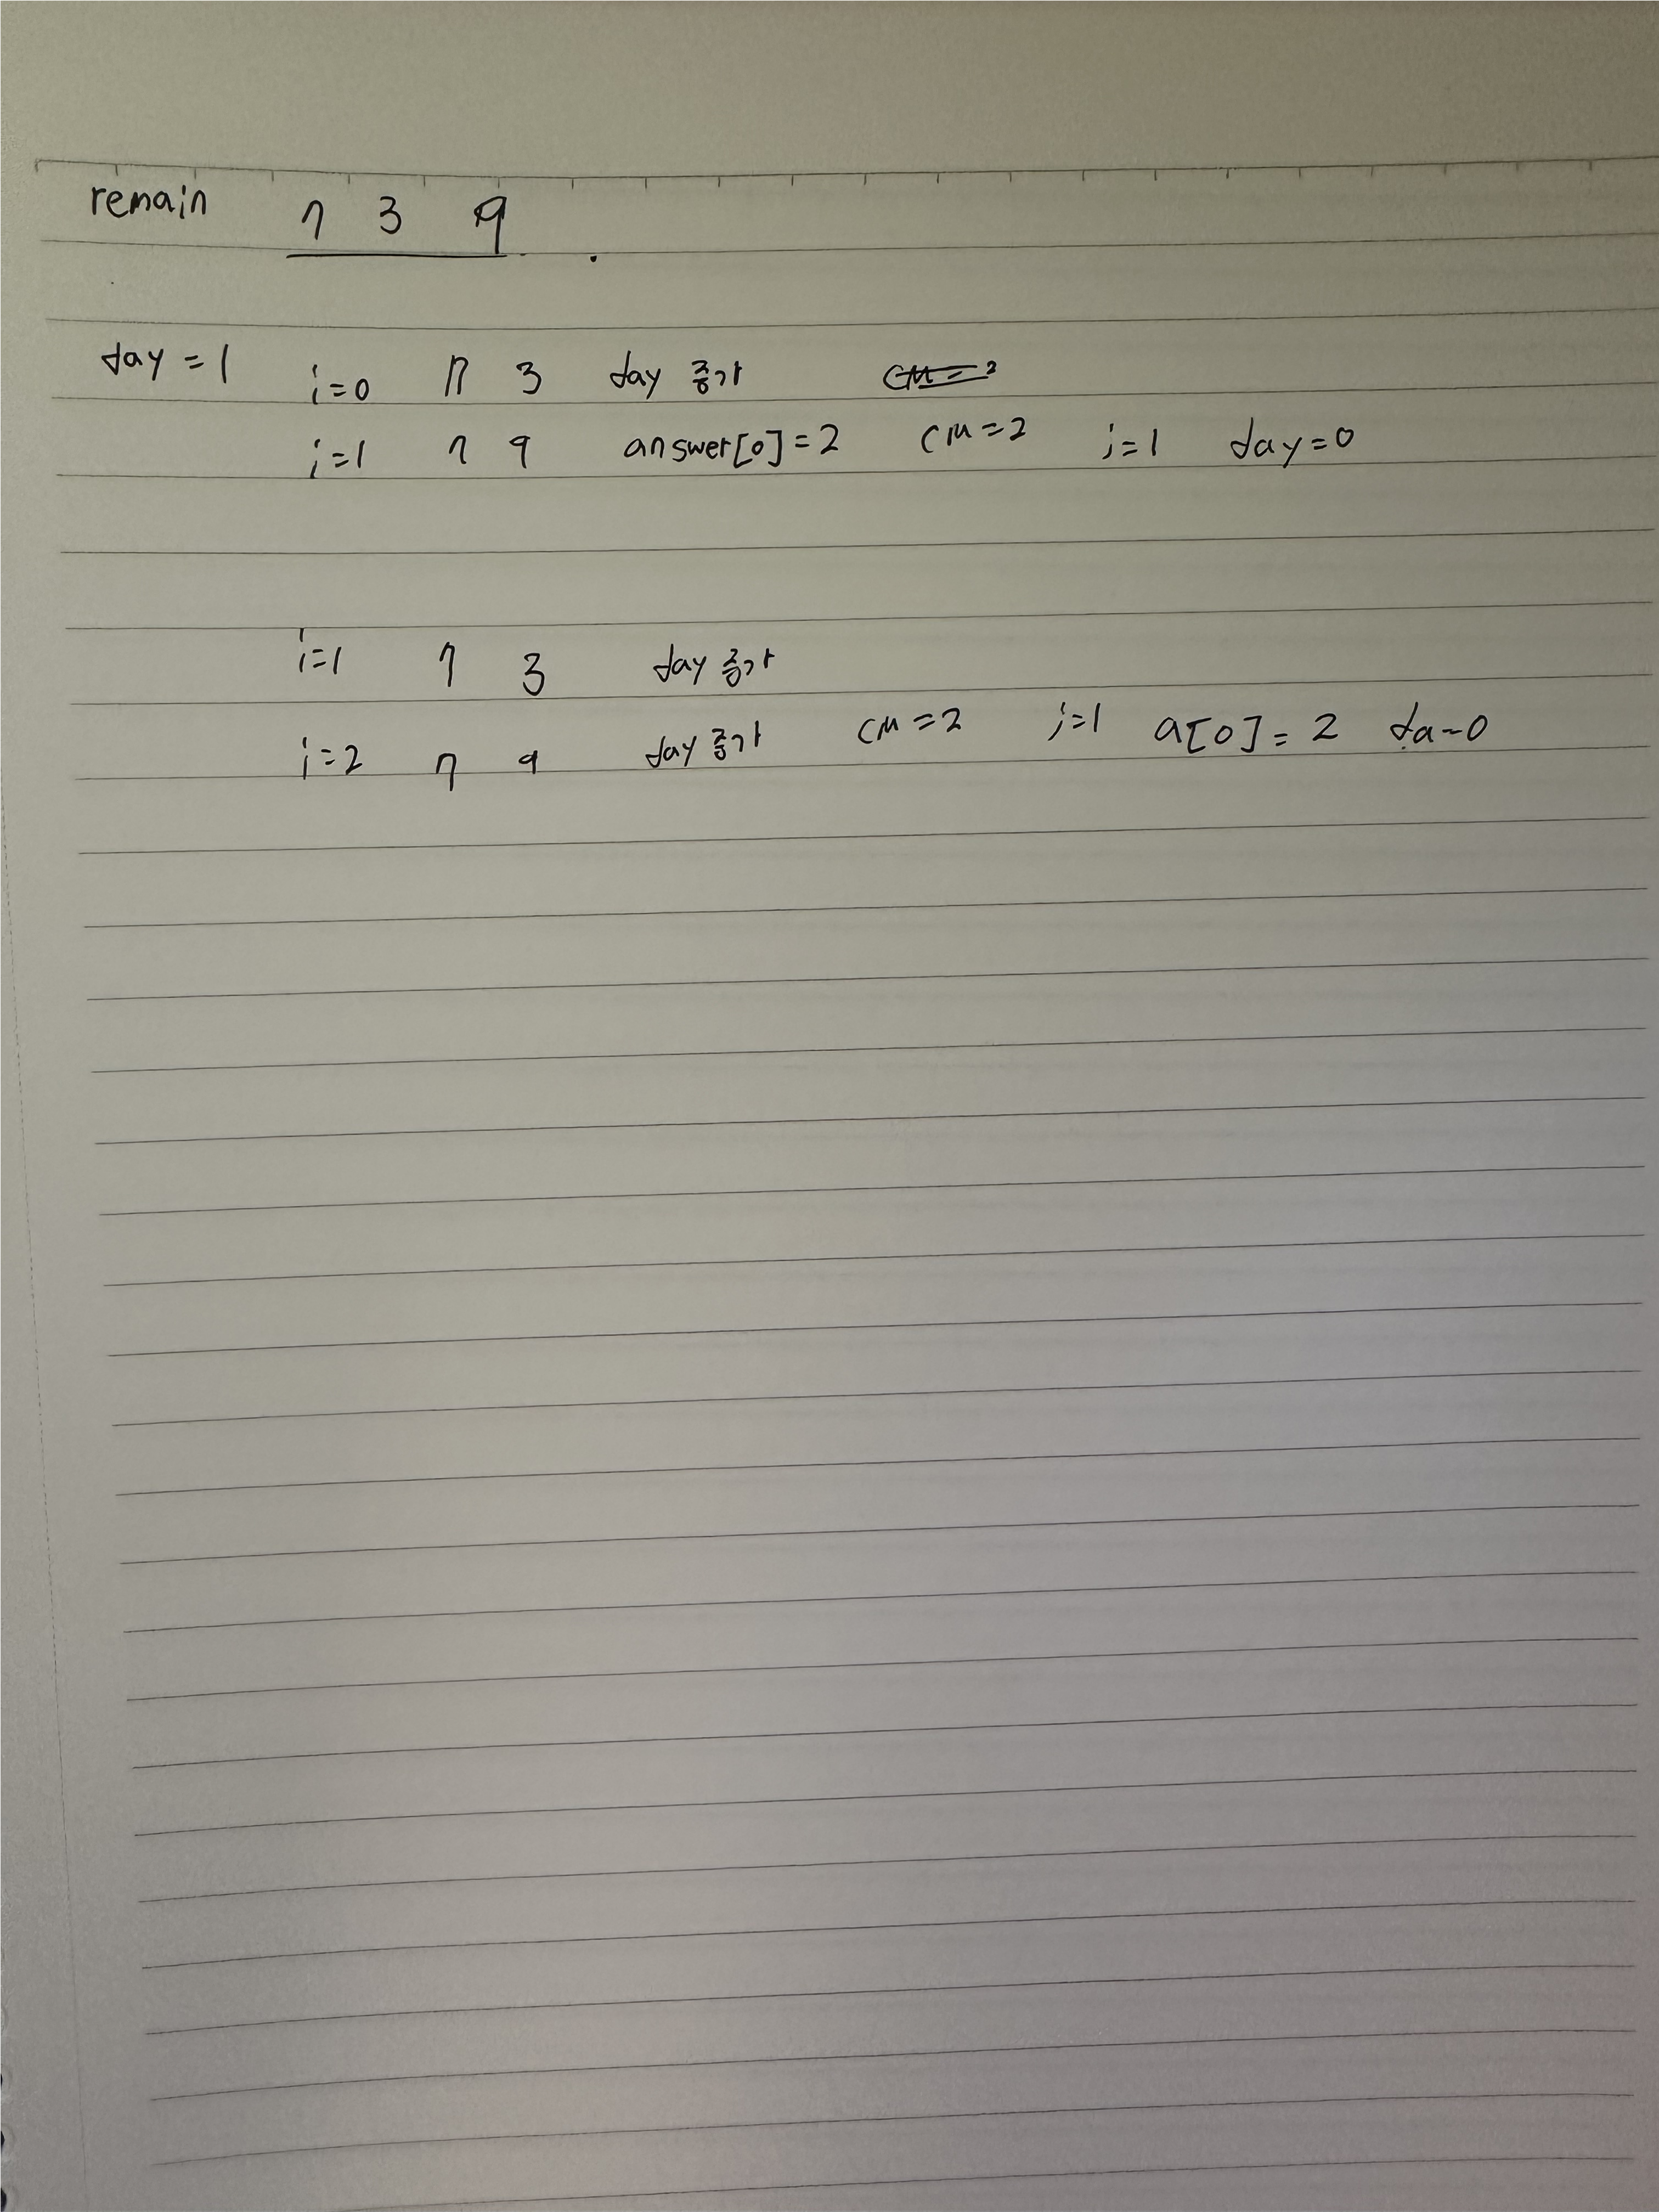 remain 7 3 9
day = 1 i=0 7 3 day 증가
i=1 7 9 answer[0]=2 CM=2 j=1 day=0
i=1 7 3 day 증가
i=2 7 9 day 증가 CM=2 j=1 a[0]=2 da-0